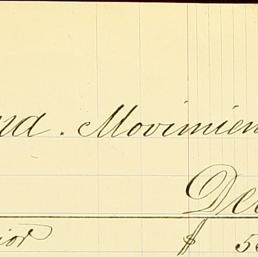 nd. Movimien
De
ior $ 5